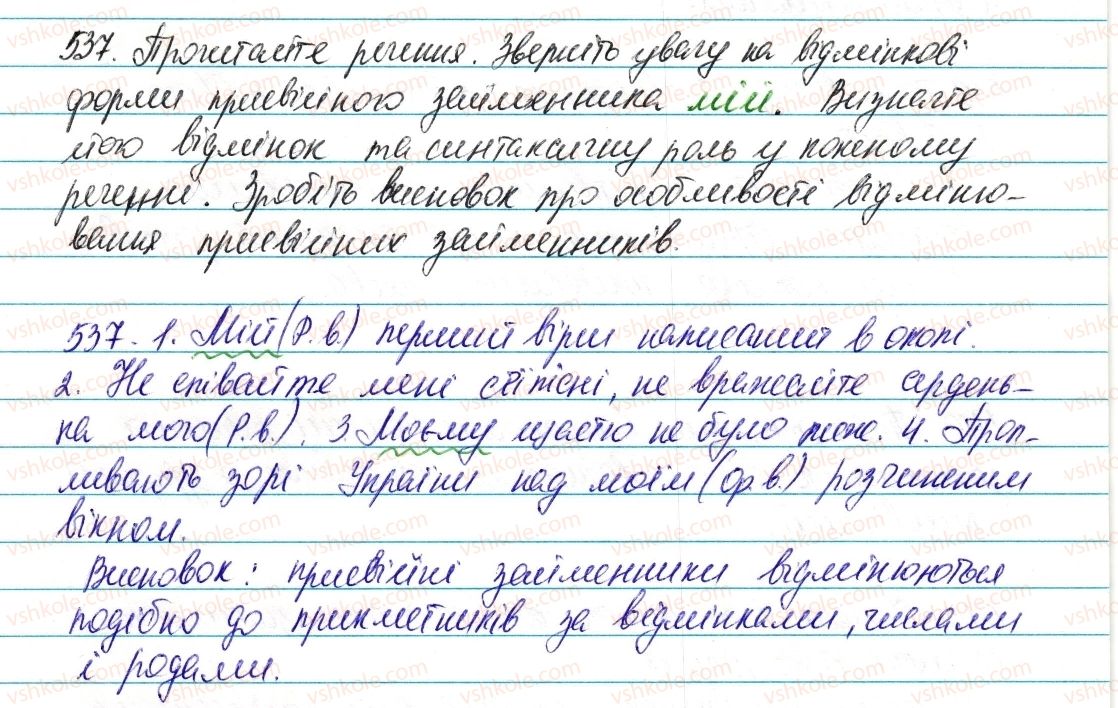 537. Прочитайте речення. Зверніть увагу на відмінкові
форми присвійного займенника мій. Визначте
його відмінок та синтаксичну роль у кожному
реченні. Зробіть висновок про особливості відміню-
вання присвійних займенників.
537. 1. Мій (Р.в) перший вірш написаний в окопі.
2. Не співайте мені сеї пісні, не вражайте сердень-
ка мого (Р.в.). 3. Моєму щастю не було меж. 4. Проп-
ливають зорі України над моїм (Ор.в.) розчиненим
вікном.
Висновок: присвійні займенники відмінюються
подібно до прикметників за відмінками, числами
і родами.